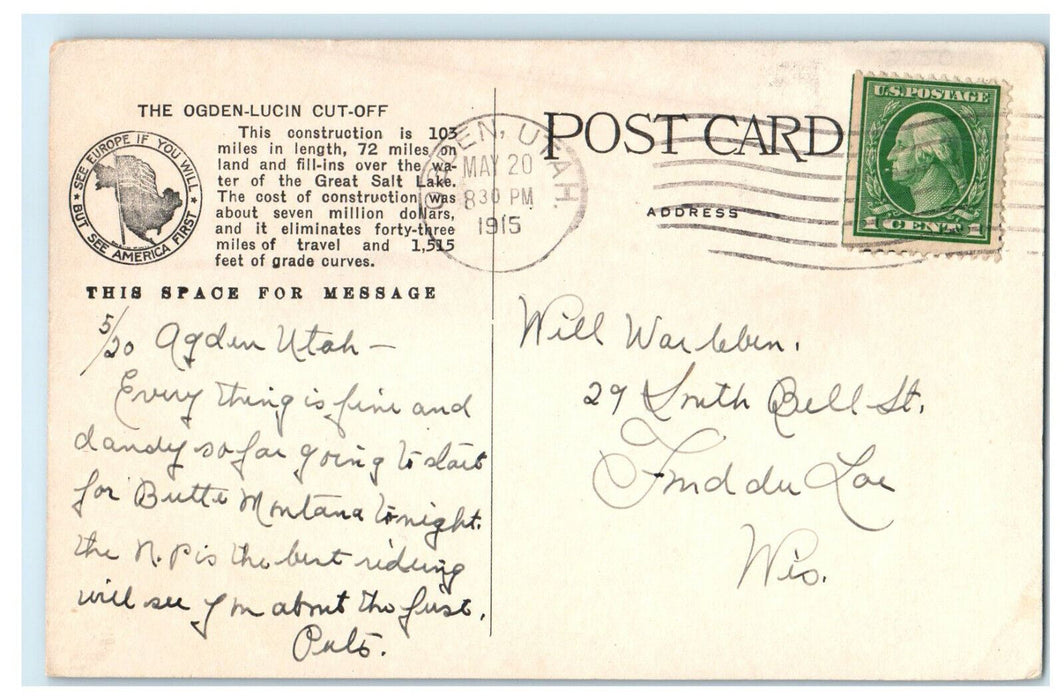 THE OGDEN-LUCIN CUT-OFF
This construction is 103
miles in length, 72 miles on
land and fill-ins over the wa-
ter of the Great Salt Lake.
The cost of construction was
about seven million dollars,
and it eliminates forty-three
miles of travel and 1,515
feet of grade curves.
SEE EUROPE IF YOU WILL
★ BUT SEE AMERICA FIRST ★
THIS SPACE FOR MESSAGE
5/20 Agden Utah —
Every thing is fine and
dandy so far going to start
for Butte Montana tonight.
the N.P is the best riding
will see you about the first.
OGDEN, UTAH.
MAY 20
830 PM
1915
POST CARD
ADDRESS
U.S. POSTAGE
1 CENT 1
Will
29 South Bell St.
Fond du Lac
Wis.